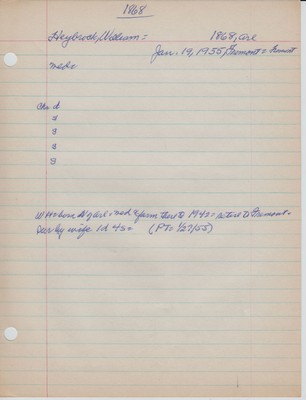 1868
Heybrock, William = 1868, Arl
Jan. 19, 1955, Tremont = Tremont
md =
Ch: d
s
s
s
s
WH = born N of Arl = md & farm there to 1942 = retired to Tremont =
Surv by wife 1d 4s = (PT = 1/27/55)